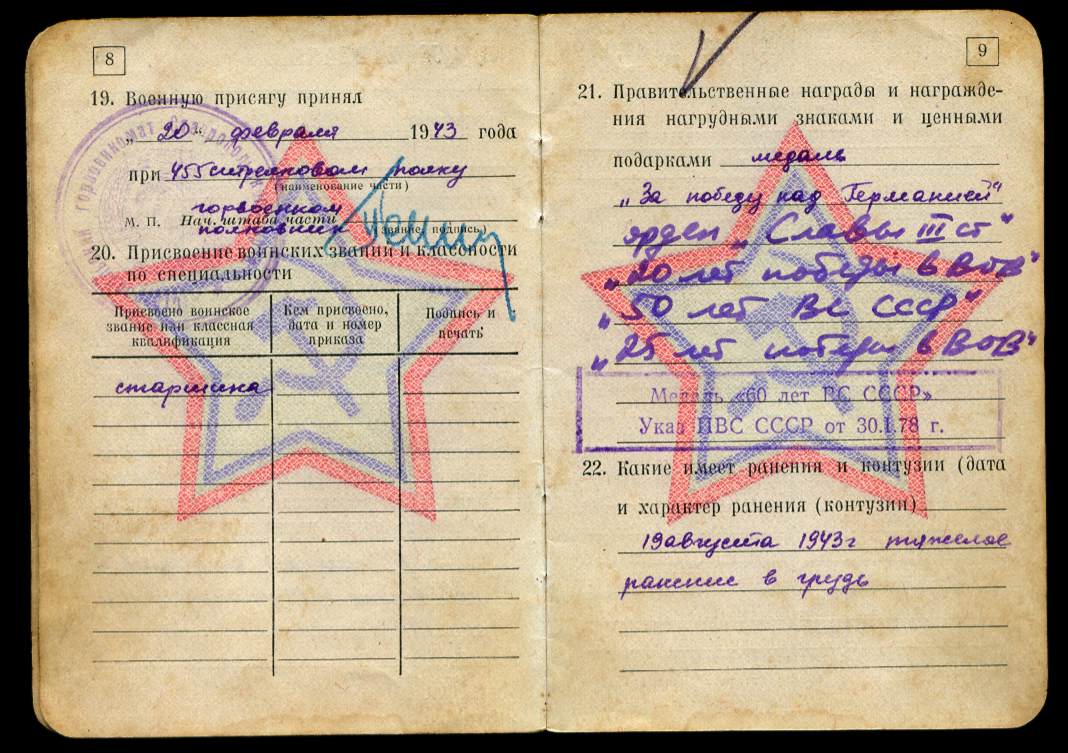 8
19. Военную присягу принял
„ 20 “ февраля 1943 года
при 455 стрелковом полку
(наименование части)
горвоенком
М. П. Нач. штаба части
полковник (звание, подпись)
20. Присвоение воинских званий и классности
по специальности
Присвоено воинское звание или классная квалификация
Кем присвоено, дата и номер приказа
Подпись и печать
старшина
9
21. Правительственные награды и награжде-
ния нагрудными знаками и ценными
подарками медаль
„За победу над Германией“
орден „Славы III ст“
„20 лет победы в ВОВ“
„50 лет ВС СССР“
„25 лет победы в ВОВ“
Медаль «60 лет ВС СССР»
Указ ПВС СССР от 30.1.78 г.
22. Какие имеет ранения и контузии (дата
и характер ранения (контузии)
19 августа 1943 г тяжелое
ранение в грудь